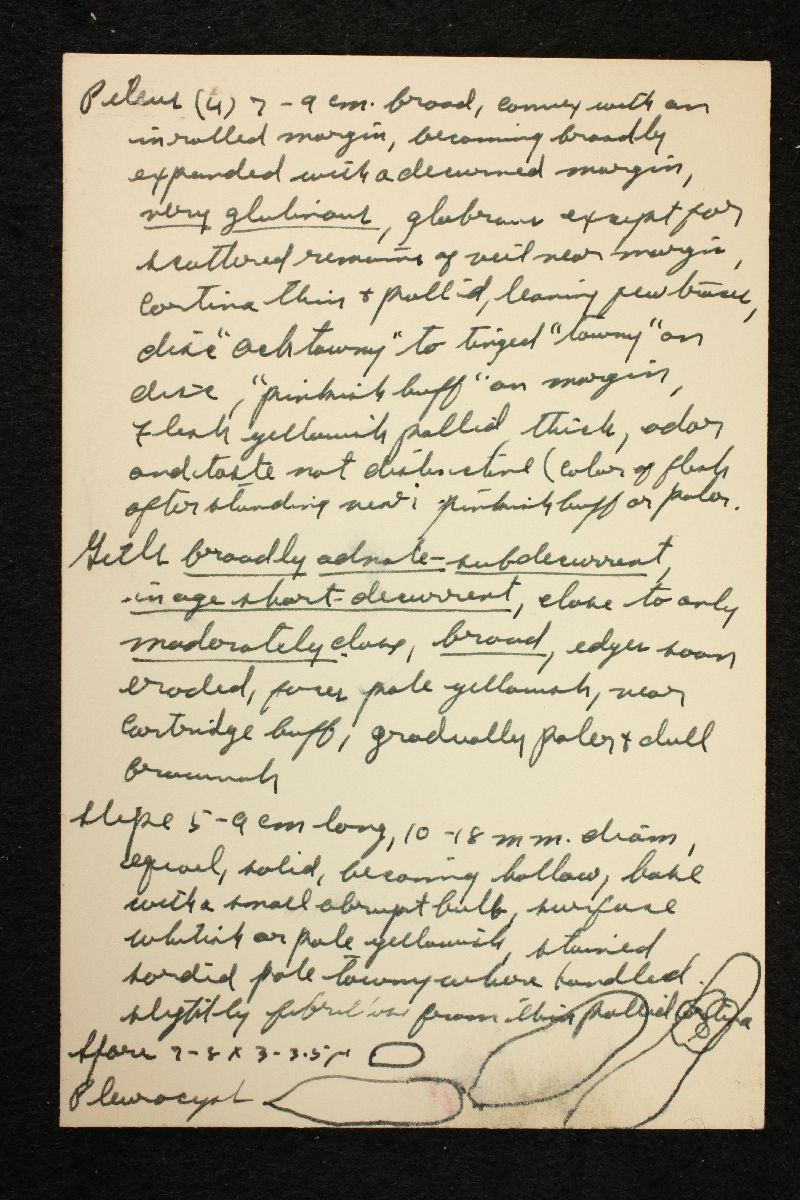 Pileus (4) 7-9 cm. broad, convex with an
inrolled margin, becoming broadly
expanded with a decurved margin,
very glutinous, glabrous except for
scattered remains of veil near margin,
Cortina thin + pallid, leaving few traces,
disc "och tawny" to tinged "tawny" on
disc, "pinkish buff" on margin,
Flesh yellowish pallid, thick, odor
and taste not distinctive (color of flesh
after standing near: pinkish buff or paler.
Gills broadly adnate-subdecurrent,
in age short-decurrent, close to only
moderately close, broad, edges soon
eroded, faces pale yellowish, near
Cartridge buff, gradually paler + dull
brownish
Stipe 5-9 cm long, 10-18 mm. diam,
equal, solid, becoming hollow, base
with a small abrupt bulb, surface
whitish or pale yellowish, stained
sordid pale tawny where handled.
slightly fibrillose from thin pallid cortina
Spore 7-8 x 3-3.5 μ
Pleurocyst